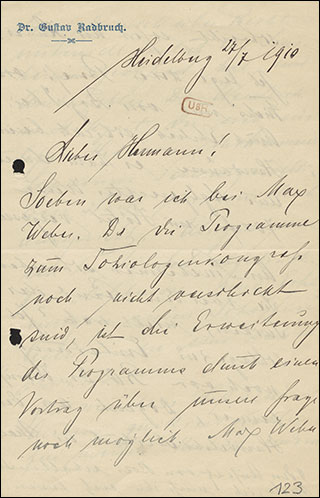 Dr. Gustav Radbruch.
Heidelberg 27/7 1910
UBH
Lieber Hermann!
Soeben war ich bei Max
Weber. Da die Programme
zum Soziologenkongreß
noch nicht verschickt
sind, ist die Erweiterung
des Programms durch einen
Vortrag über unsere Frage
noch möglich. Max Weber
123